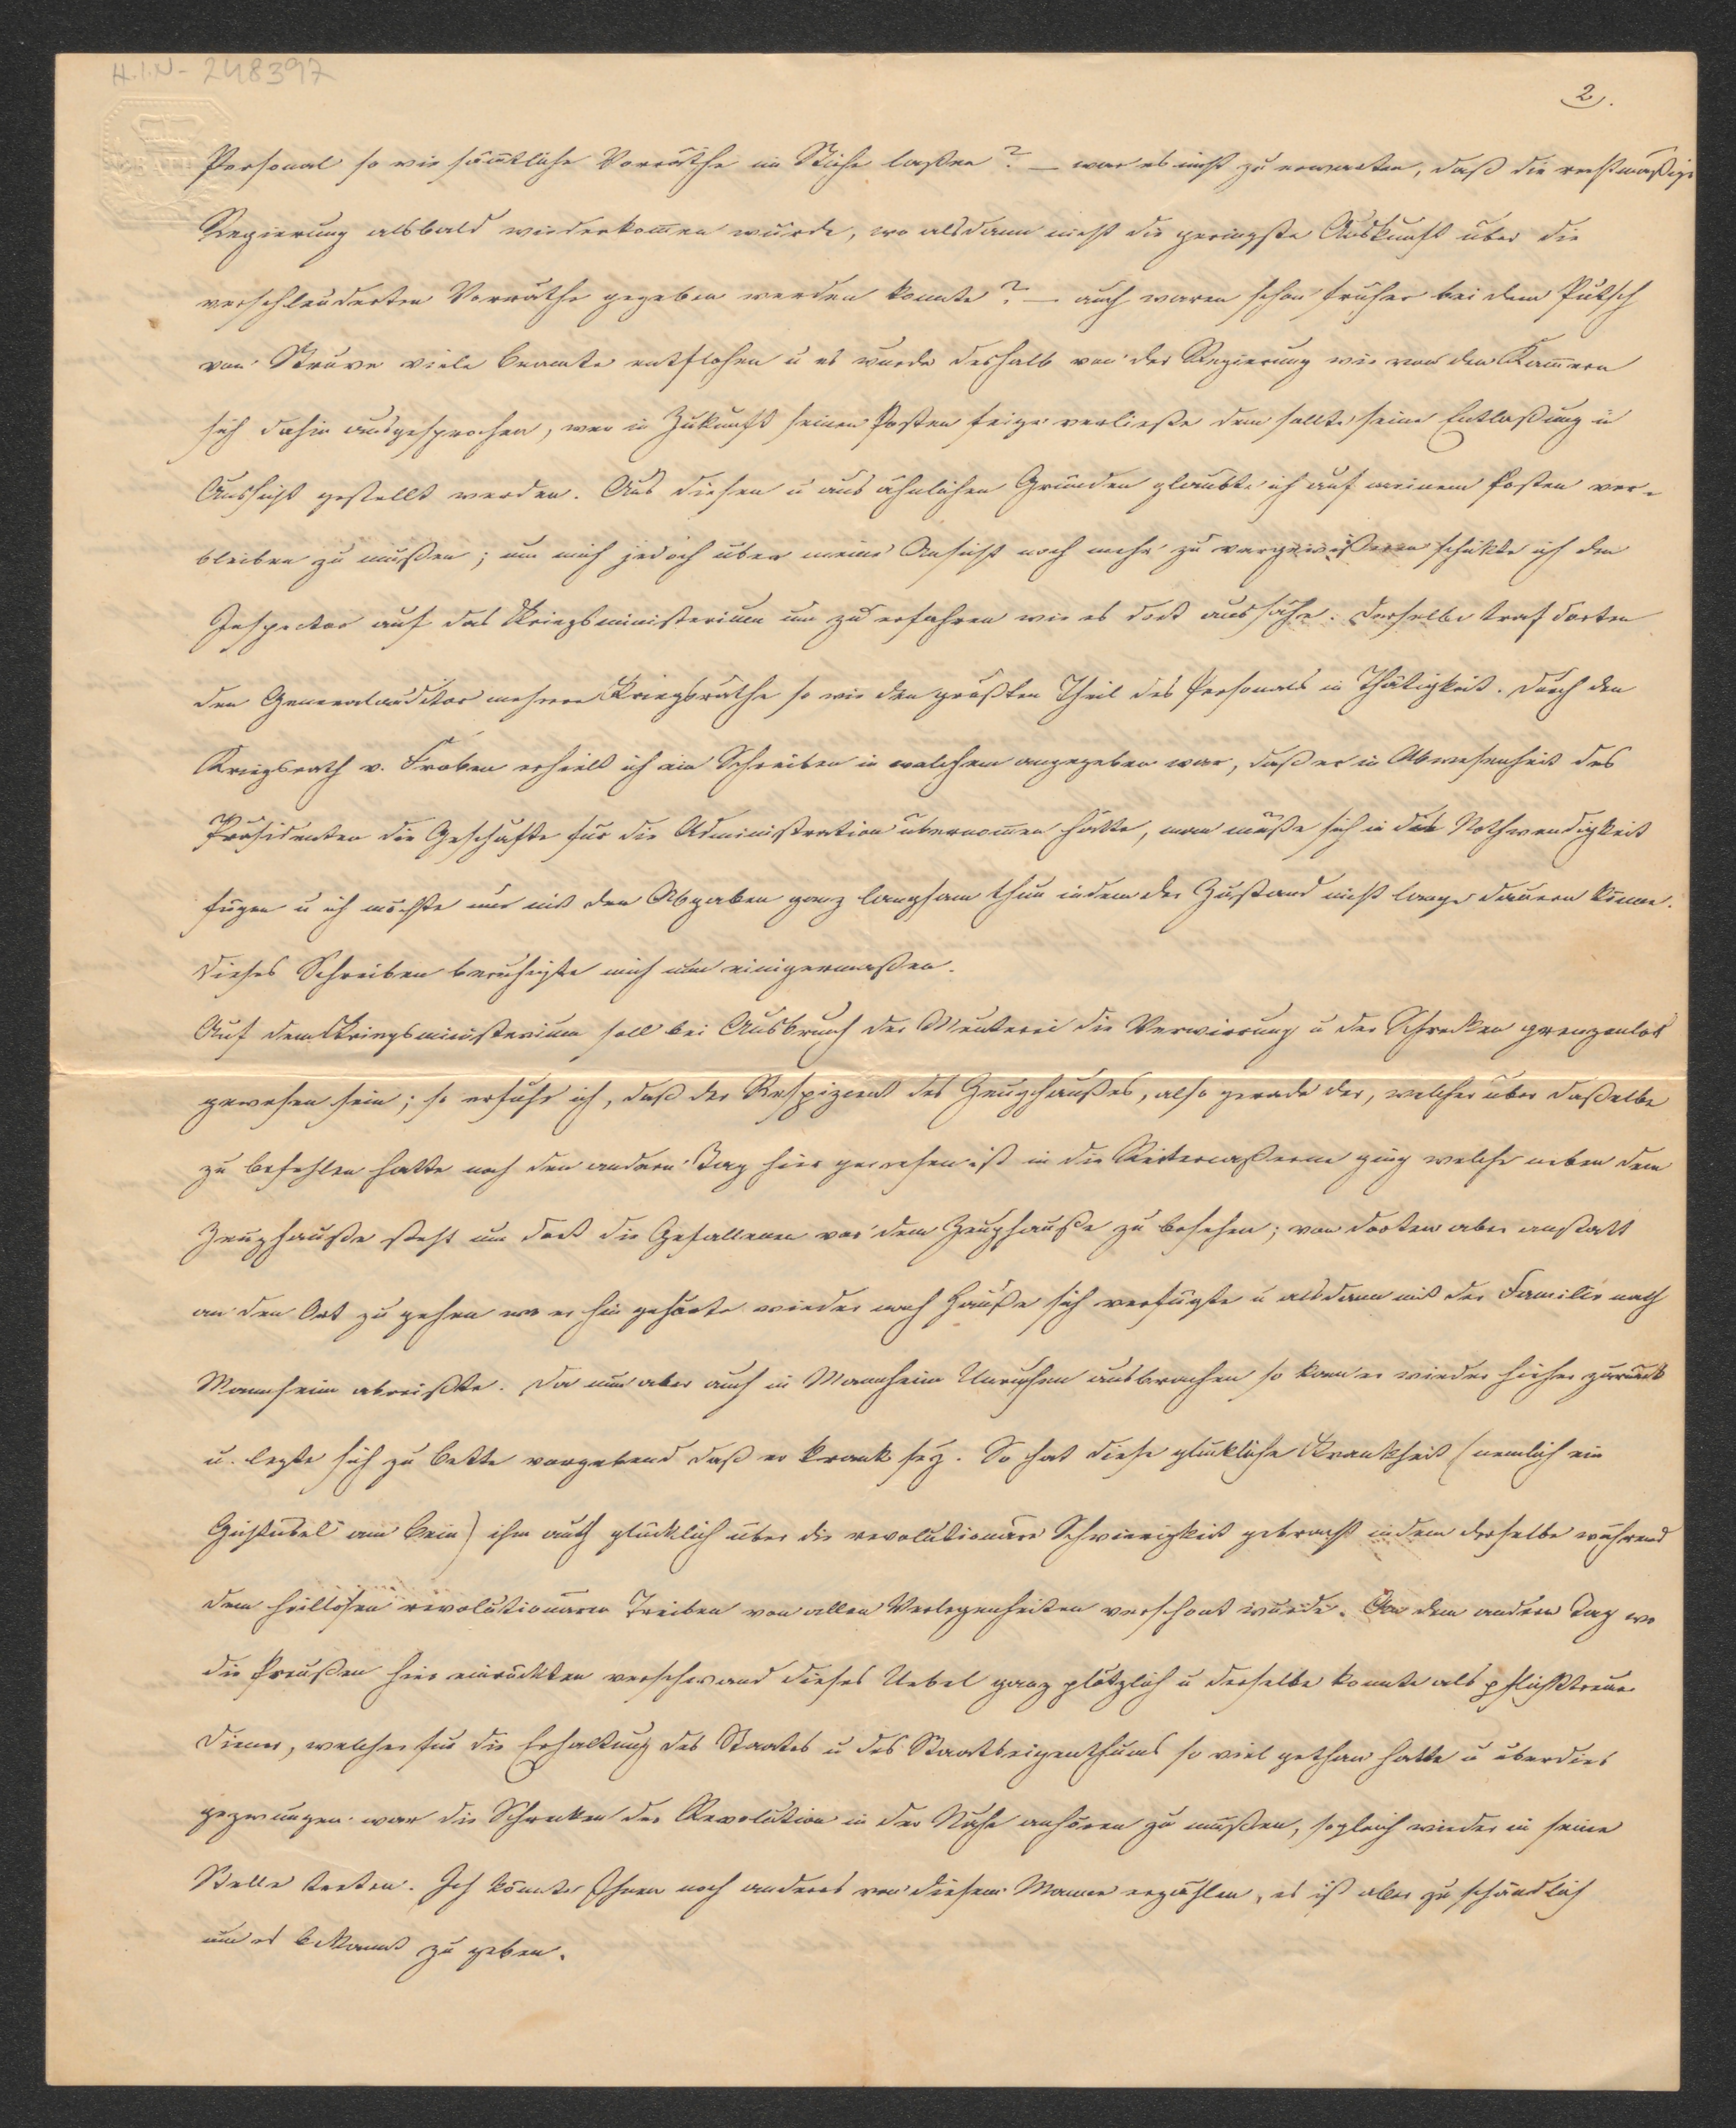 H.I.N- 248397
2.
Personal so wie sämtliche Vorräthe im Stiche laßen? — war es nicht zu erwarten, daß die rechtmäßige
Regierung alsbald wiederkommen würde, wo alsdann nicht die geringste Auskunft über die
verschleuderten Vorräthe gegeben werden konnte? — auch waren schon früher bei dem Putsch
von Struve viele Beamte entflohen u es wurde deshalb von der Regierung wie von den Kammern
sich dahin ausgesprochen, wer in Zukunft seinen Posten feige verließe dem sollte seine Entlaßung in
Aussicht gestellt werden. Aus diesen u aus ähnlichen Gründen glaubte ich auf meinem Posten ver-
bleiben zu müßen; um mich jedoch über meine Ansicht noch mehr zu vergewißeren schickte ich den
Inspector auf das Kriegsministerium um zu erfahren wie es dort aussähe. Derselbe traf dorten
den Generalauditor mehrere Kriegsräthe so wie den größten Theil des Personals in Thätigkeit. Durch den
Kriegsrath v. Froben erhielt ich ein Schreiben in welchem angegeben war, daß er in Abwesenheit des
Präsidenten die Geschäfte für die Administration übernommen hätte, man müße sich in die Nothwendigkeit
fügen u ich möchte nur mit den Abgaben ganz langsam thun indem der Zustand nicht lange dauern könne.
Dieses Schreiben beruhigte mich nun einigermaßen.
Auf dem Kriegsministerium soll bei Ausbruch der Meuterei die Verwirrung u der Schrecken grenzenlos
gewesen sein; so erfuhr ich, daß der Respizient des Zeughaußes, also gerade der, welcher über daßelbe
zu befehlen hatte noch den andern Tag hier gewesen ist in die Reitercaßerne ging welche neben dem
Zeughauße steht um dort die Gefallenen vor dem Zeughauße zu besehen; von dorten aber anstatt
an den Ort zu gehen wo er hin gehörte wieder nach Hauße sich verfügte u alsdann mit der Familie nach
Mannheim abreißte. Da nun aber auch in Mannheim Unruhen ausbrachen so kam er wieder hieher zurück
u. legte sich zu Bette vorgebend daß er krank sey. So hat diese glückliche Krankheit (nemlich ein
am Bein) ihn auch glücklich über die revolutionäre Schwierigkeit gebracht indem derselbe während
dem heillosen revolutionären Treiben von allen Verlegenheiten verschont wurde. An dem andern Tag wo
die Preußen hier einrückten verschwand dieses Uebel ganz plötzlich u derselbe konnte als pflichttreuer
Diener, welcher für die Erhaltung des Staates u des Staatseigenthums so viel gethan hatte u überdies
gezwungen war die Schrecken der Revolution in der Nähe anhören zu müßen, sogleich wieder in seine
Stelle tretten. Ich könnte Ihnen noch anderes von diesem Manne erzählen, es ist aber zu schändlich
um es bekannt zu geben.